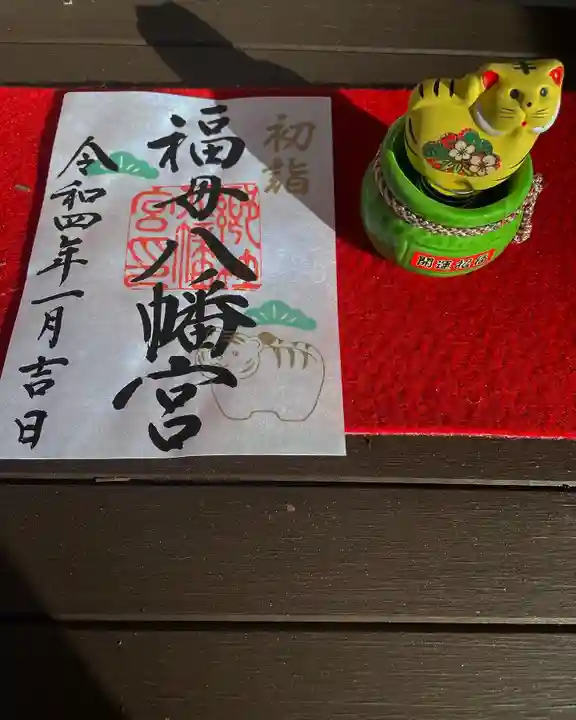 初詣
福母八幡宮
令和四年一月吉日
開運招福